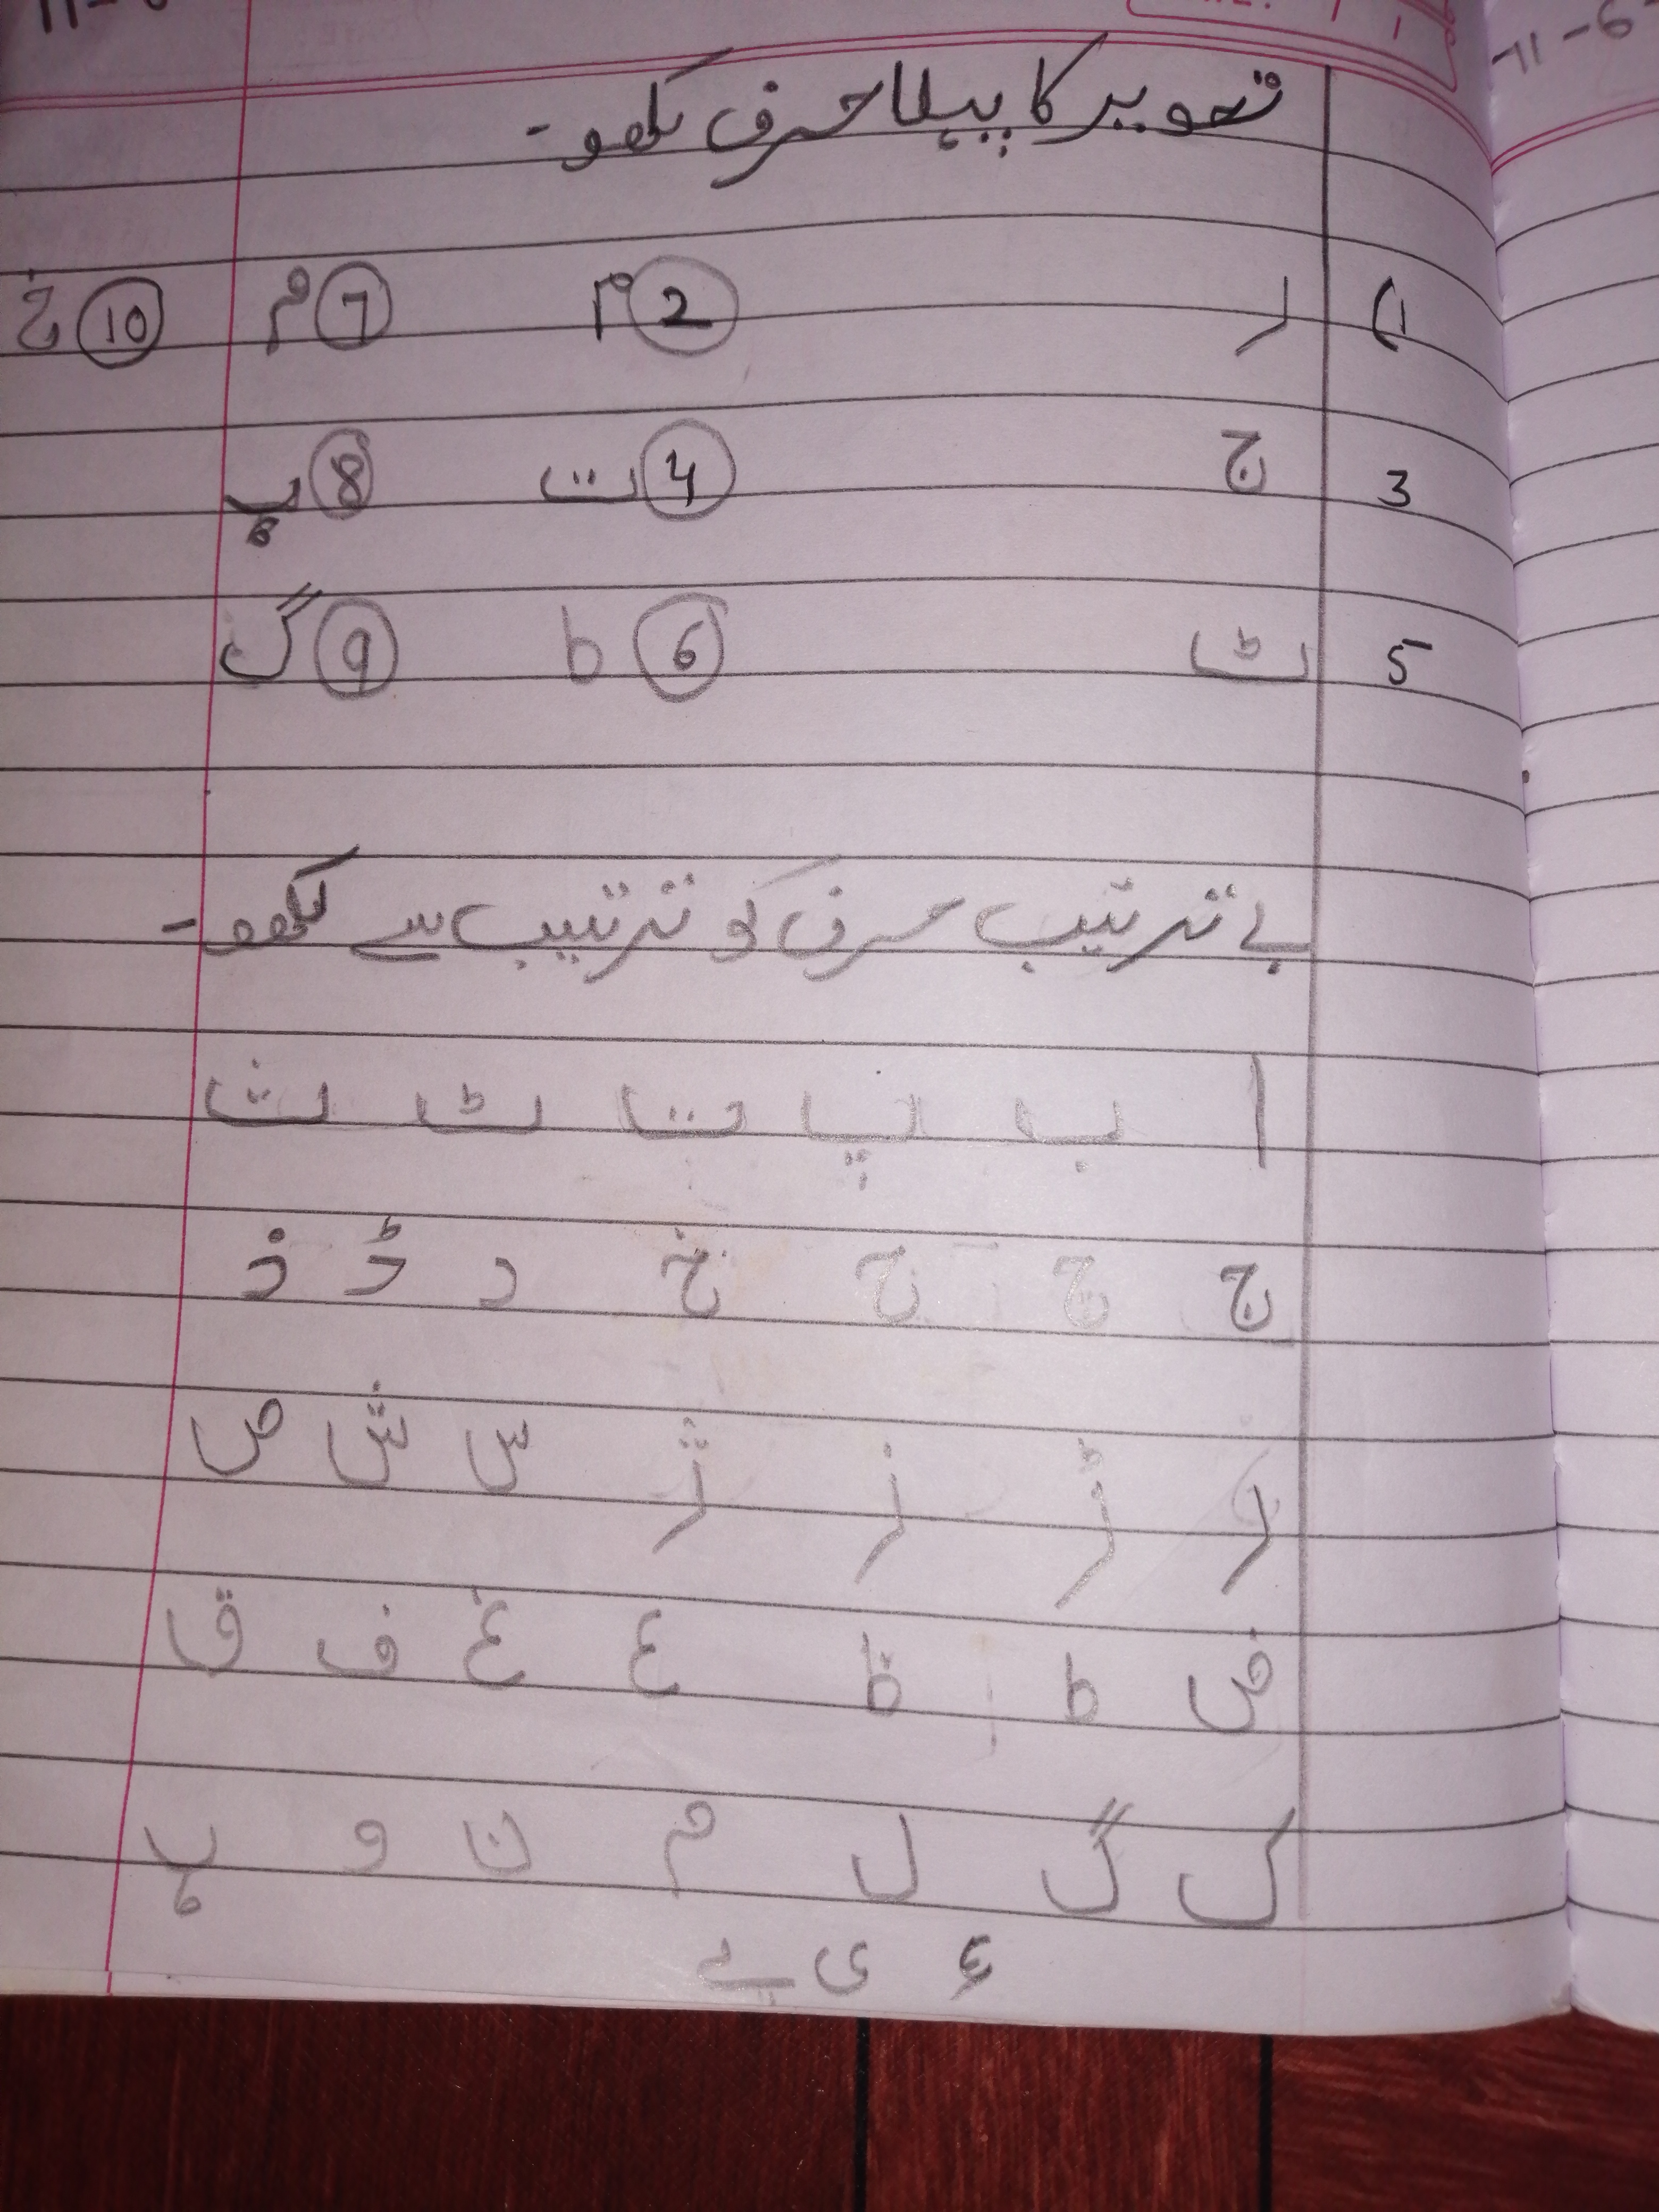 تصویر کا پہلا حرف لکھو۔
1) ر 2 م 7 م 10 خ
3 ج 4 ت 8 ہ
5 ٹ 6 ط 9 گ
بے ترتیب حرف کو ترتیب سے لکھو۔
ا ب پ ت ٹ ث
ج چ ح خ د ڈ ذ
ر ڑ ز ژ س ش ص
ض ط ظ ع غ ف ق
ک گ ل م ن و ہ
ء ی ے